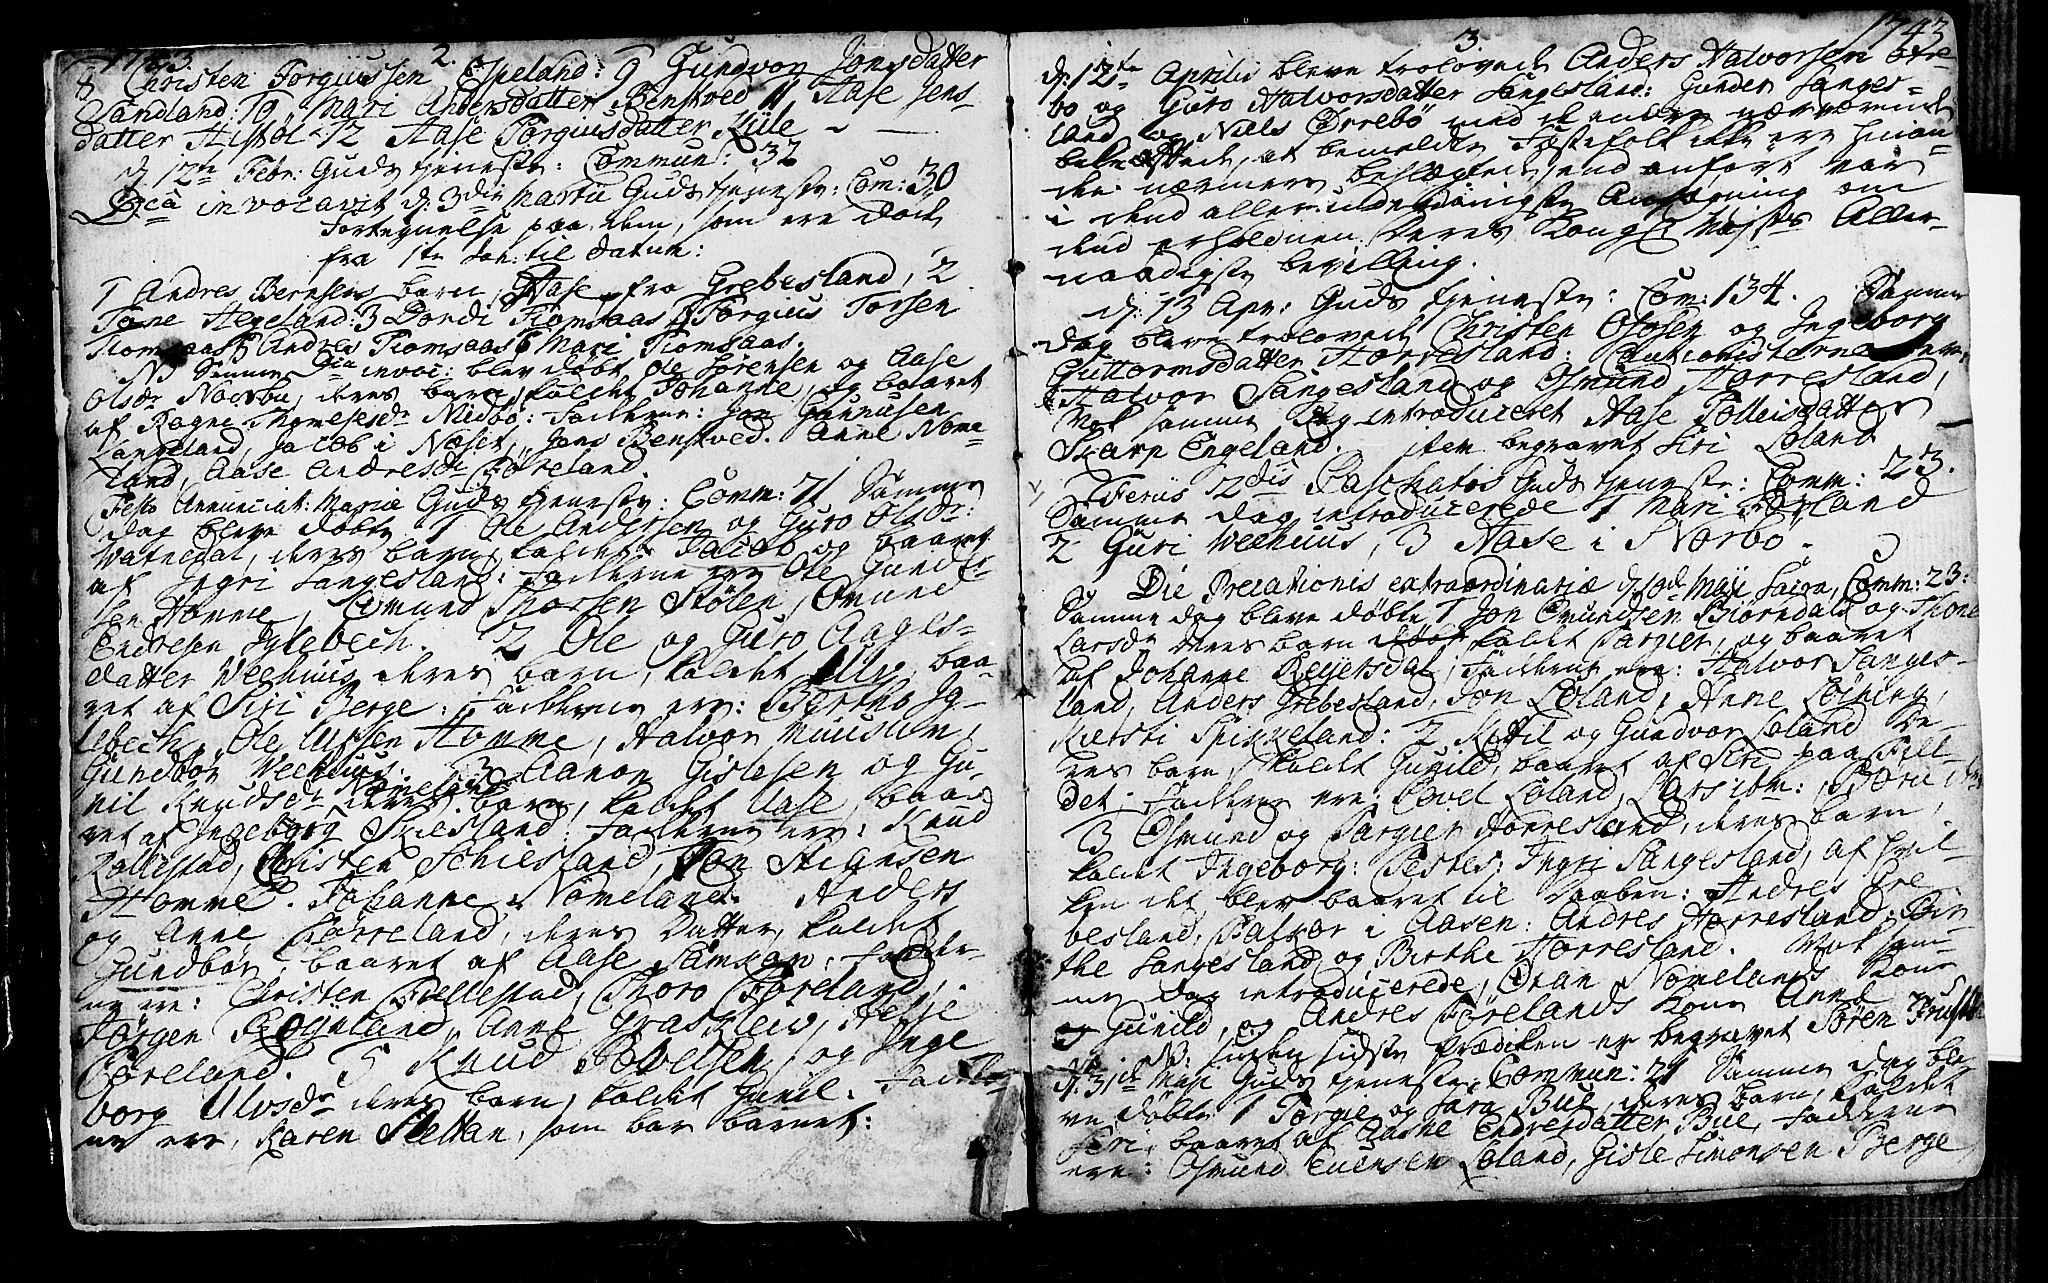 1743. 2.
8 Christen Torgiussen Espeland: 9 Gundvor Jonsdatter
Sandland: 10 Mari Andersdatter Benstved 11 Aase Jens-
datter Histøl - 12 Aase Torgiusdatter Kiile
d. 12te Febr: Guds tjeneste: Commun: 32
Dca invocavit d: 3die Martii Guds tjeneste: Com: 30
Fortegnelse paa dem, som ere døde
fra 1te Jan: til datum:
1 Andres Bernsens barn, Aase fra Grebesland, 2
Tone Hegeland: 3 Dordi Tiomsaas 4 Torgius Torsen
Tiomsaas 5 Andres Tiomsaas 6 Mari Tiomsaas.
NB Samme Dca invoc: blev døbt Ole Sørensen og Aase
Olsdr Naarbu, deres barn kaldet Johanne, og baaret
af Ragne Thomesesdr Medbø: Fadderne: Jon Gunnusen
Langeland, Jacob i Næset, Jens Benstved. Anne Nome-
land, Aase Andresdr Føreland.
Festo Annunciat: Mariæ Guds tjeneste: Comm: 71 Samme
dag bleve døbte 1 Ole Andersen og Guro Olsdr:
Vatnedal, deres barn, kaldet Jacob og baaret
af Ingri Langesland: Fadderne ere Ole Gunde-
sen Homme, Osmund Thorsen Stølen, Omund
Endresen Iglebech. 2 Ole og Guro Aages-
datter Veehuus deres barn, kaldet Siv, baa-
ret af Siri Berge: Fadderne ere: Bertho Ig-
lebech, Ole Ulfsen Homme, Halvor Muuslien,
Gundbor Veehuus. 3 Aanon Gislesen og Gu-
nil Knudsdr Nomeland deres barn, kaldet Aase, baa-
ret af Ingeborg Skiesland: Fadderne ere: Knud
Rollestad, Christen Schiesland, Jon Stiansen
Homme. Johanne Nomeland. Anders
og Anne Førreland, deres datter, kaldet
Gundbor, baaret af Aase Samson: Fadder-
ne ere: Christen Fiellestad, Thoro Føreland,
Jørgen Rogeland, Anne Graskleiv, Helje
Føreland. 5 Knud Povelsen, og Inge
borg Ulvsdr deres barn, kaldet Gunil. Fadder-
ne ere, Karen Slettan, som bar barnet:
3. 1743
d. 12te Aprilis bleve trolovede Anders Halvorsen Ore
bo og Guro Halvorsdatter Langesland: Gunder Langes-
land og Niels Orrebö med de andre nærværende
bekræftede, at bemeldte Fæstefolk ikke ere hinan-
den nærmere beslægtede, end anført var
i dend allerunderdanigste Ansøgning om
dend erholdne Deres Kongl: Mayts Aller-
naadigste bevilling.
d: 13 Apr: Guds tjeneste: Com: 134. Samme
dag bleve trolovede Christen Olofsen og Ingeborg
Guttormsdatter Horresland: Cautionisterne vare,
Halvor Langesland og Osmund Horresland,
Nok samme dag introduceret Aase Tolleisdatter
Skarp Engeland. Item begravet Siri Loland
Feriis 2dis Paschatos Guds tjeneste: Comm: 23.
Samme dag introducerede 1 Mari Øyland
2 Guri Veehuus, 3 Aase i Norbö.
Die Precationis extraordinariæ d. 10de Maji Comm: 23:
Samme dag bleve døbte 1 Jon Omundsen Biørndals og Thone
Larsdr deres barn kaldet Targier, og baaret
af Johanne Reijersdal, Fadderne ere: Halvor Langes-
land, Anders Grebesland, Jon Loland, Anne Löining,
Kiersti Spikkeland: 2 Kittil og Gundvor Loland De-
res barn, kaldet Gunild, baaret af Siri paa Fiel-
det: Fadderne ere, Povel Loland, Lars ibm: Børu
3 Osmund og Targier Horresland, deres barn,
kaldet Ingeborg: Testes: Ingri Langesland, af hvil-
ken det blev baaret til daaben: Andres Gre
besland, Halvor i Aasen: Andres Horresland, Bir-
the Langesland og Birthe Horresland. Nok sam-
me dag introducerede, Oran Nomelands Kone
Gunild, og Andres Førelands Kone Anne
NB: siden sidste Prædiken er begravet Søren
d. 31te Maji Guds tjeneste, Commun: 21 Samme dag ble-
ve døbte 1 Torgie og Sara Bue, deres barn, kaldet
Siri, baaret af Aasne Endresdatter Bue, Fadderne
ere: Osmund Evensen Loland, Gisle Simonsen Berge